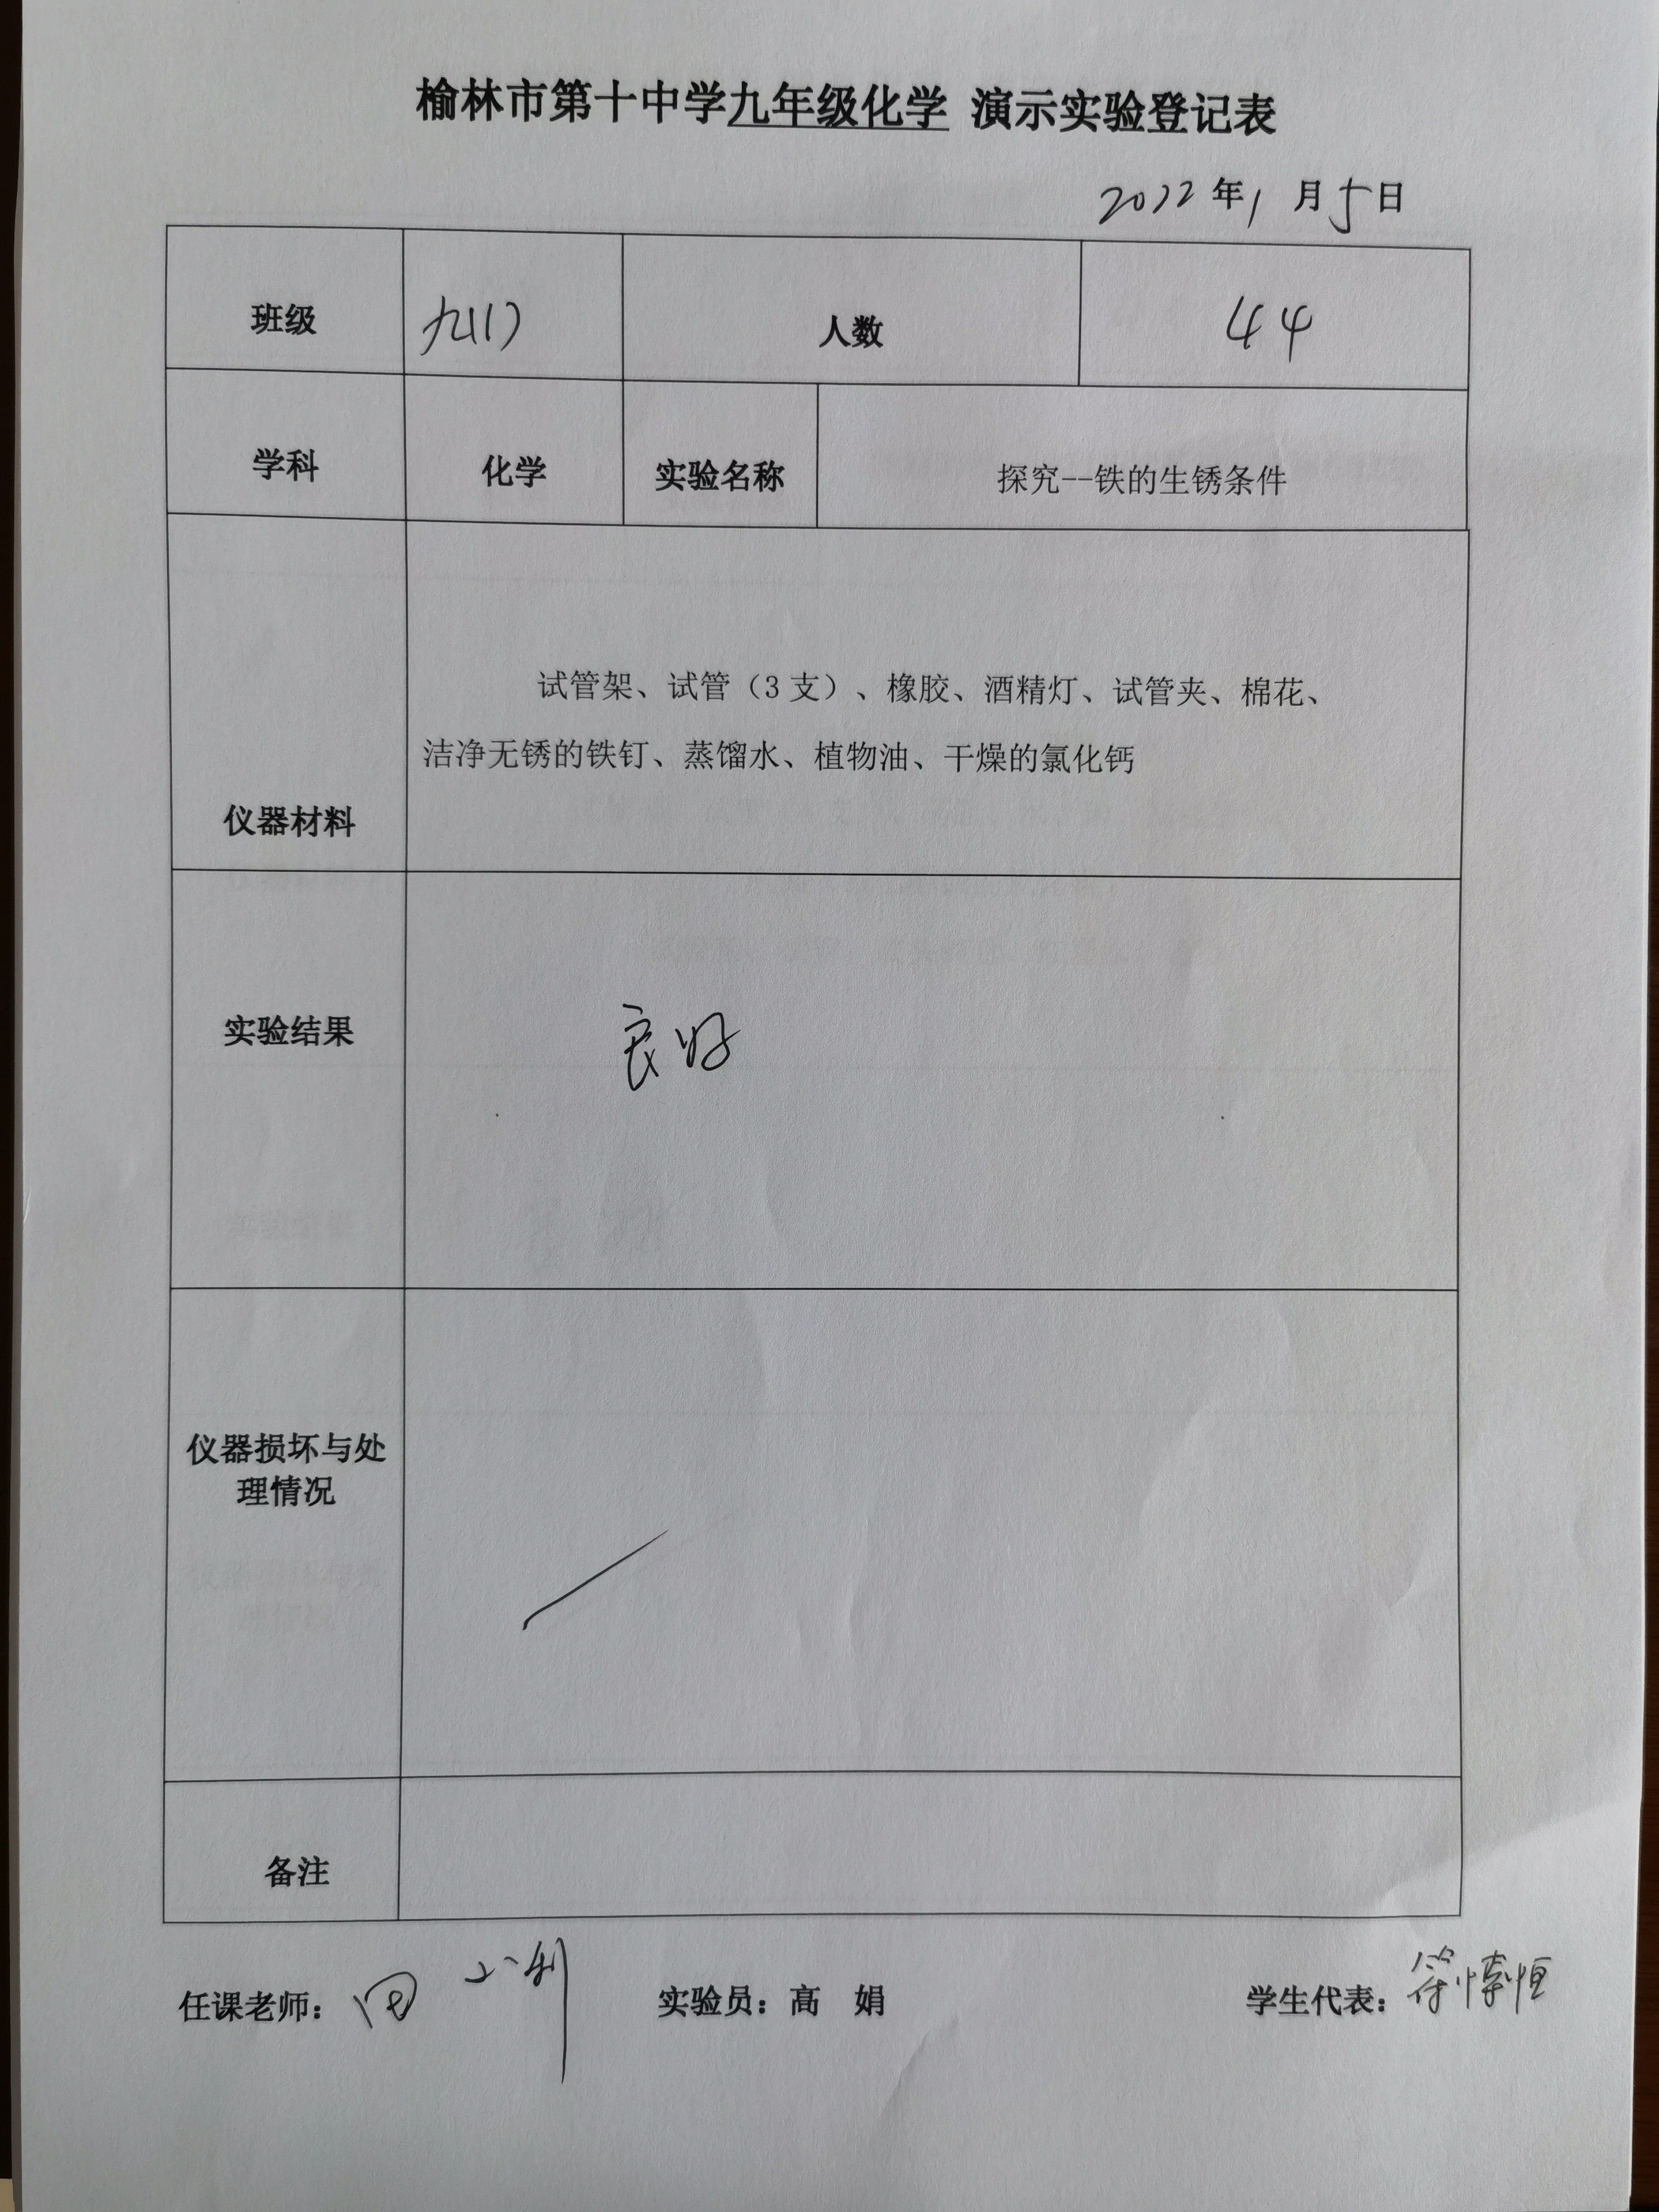 榆林市第十中学九年级化学 演示实验登记表
2022年1月5日
班级 九(1) 人数 44
学科 化学 实验名称 探究--铁的生锈条件
试管架、试管（3支）、橡胶、酒精灯、试管夹、棉花、
洁净无锈的铁钉、蒸馏水、植物油、干燥的氯化钙
仪器材料
实验结果 良好
仪器损坏与处
理情况
备注
任课老师： 实验员：高 娟 学生代表：